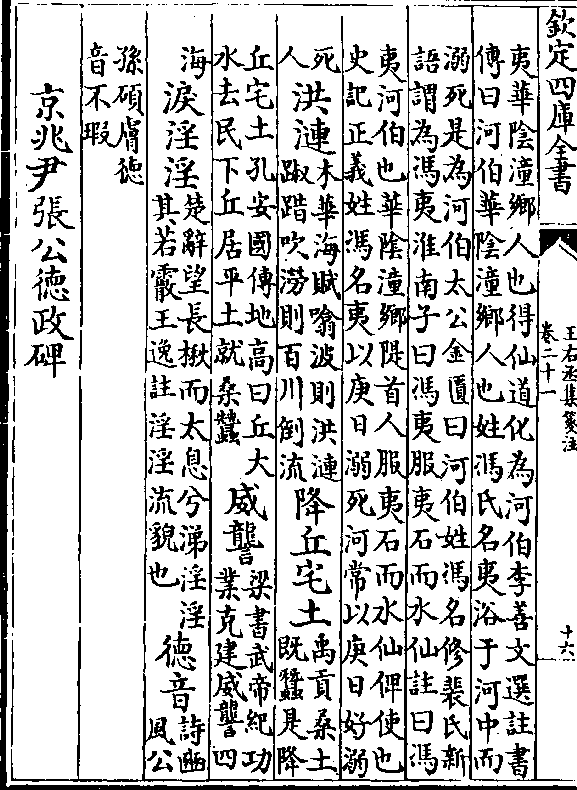 欽定四庫全書
王右丞集箋注
卷二十一
十六
夷華陰潼鄉人也得仙道化為河伯李善文選註書
傳曰河伯華陰潼鄉人也姓馮氏名夷浴于河中而
溺死是為河伯太公金匱曰河伯姓馮名修裴氏新
語謂為馮夷淮南子曰馮夷服夷石而水仙註曰馮
夷河伯也華陰潼鄉隄首人服夷石而水仙俾使也
史記正義姓馮名夷以庚日溺死河常以庚日好溺
死
人
洪漣
木華海賦噏波則洪漣
踧踖吹澇則百川倒流
降丘宅土
禹貢桑土
既蠶是降
丘宅土孔安國傳地高曰丘大
水去民下丘居平土就桑蠶
威讋
梁書武帝紀功
業克建威讋四
海
淚淫淫
楚辭望長楸而太息兮涕淫淫
其若霰王逸註淫淫流貌也
德音
詩豳
風公
孫碩膚德
音不瑕
京兆尹張公德政碑